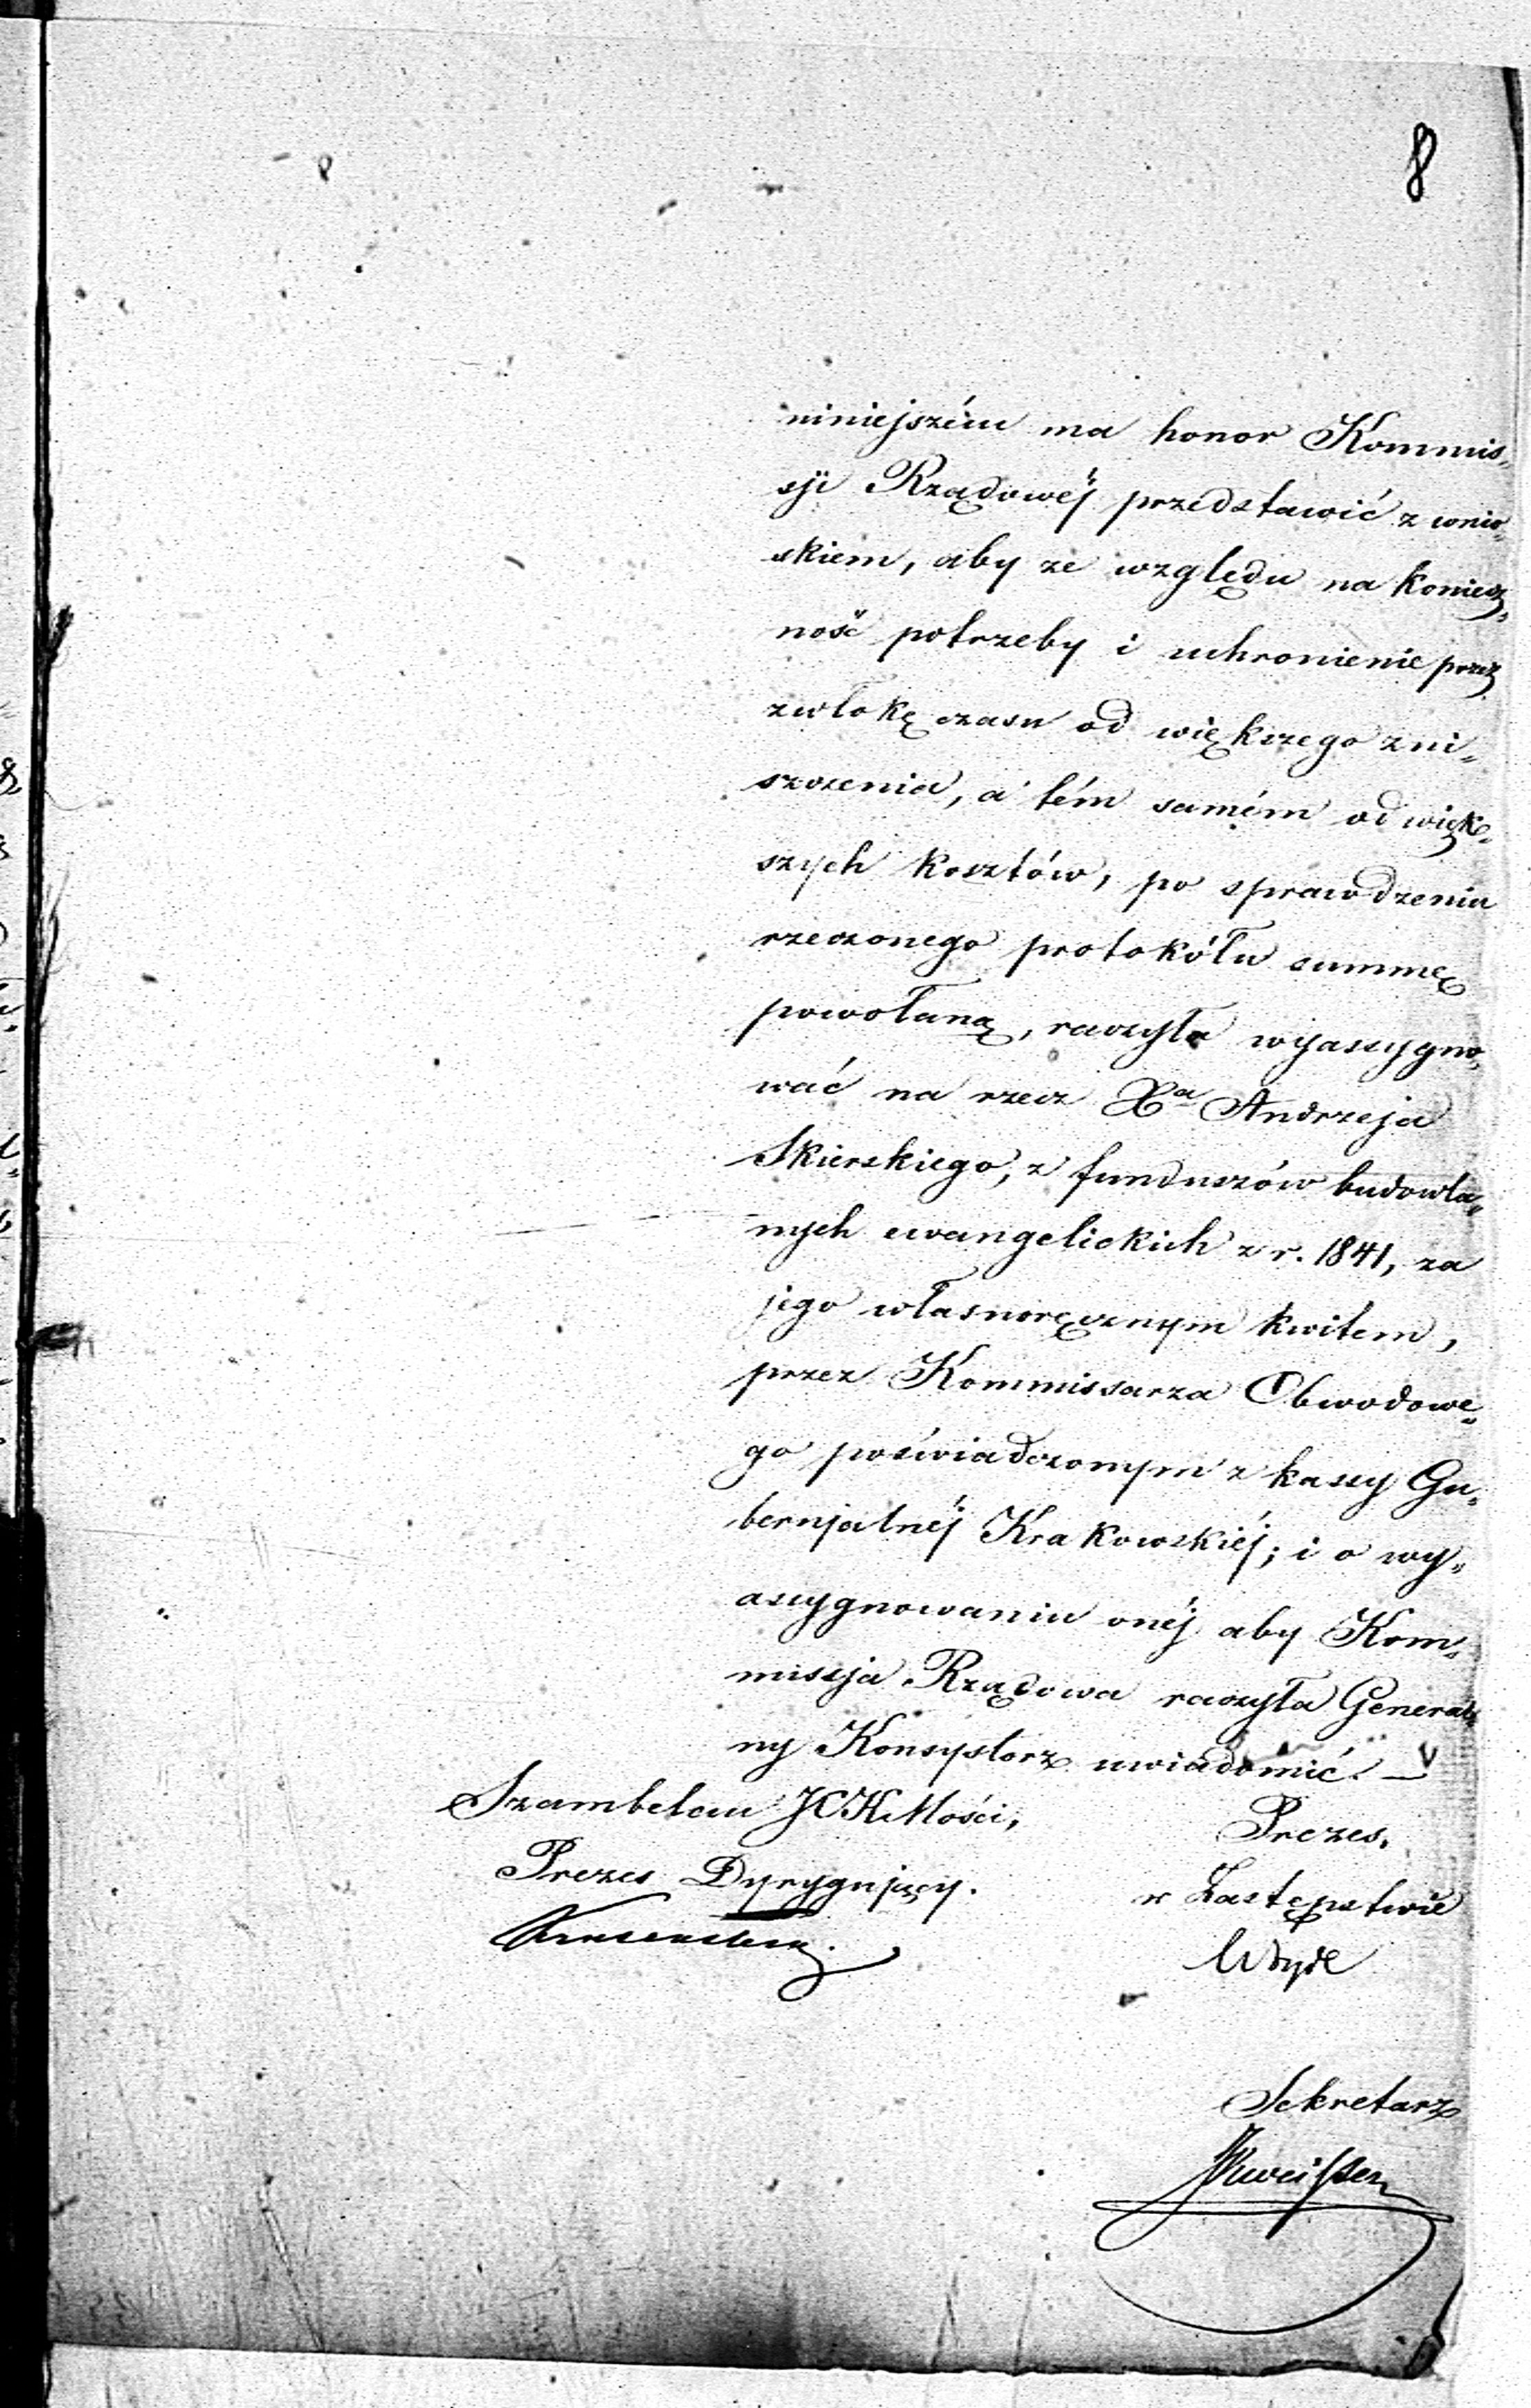 8
niniejszém ma honor Kommis„
sji Rządowéj przedstawić z wnio„
skiem, aby ze względu na koniecz„
ność potrzeby i uchronienie przez
zwłokę czasu od większego zni„
szczenia, a tém samém od więk„
szych kosztów, po sprawdzeniu
rzeczonego protokółu summę
powołaną, raczyła wyassygno„
wać na rzecz Xa Andrzeja
Skierskiego, z funduszów budowla„
nych ewangelickich z r. 1841, za
jego własnoręcznym kwitem,
przez Kommissarza Obwodowe„
go poświadczonym z kassy Gu„
bernjalnéj Krakowskiéj; i o wy„
assygnowaniu onéj aby Kom„
missja Rządowa raczyła General„
ny Konsystorz uwiadomić. —
Szambelan JCKMości,
Prezes Dyrygujący.
Prezes,
w Zastępstwie
Sekretarz